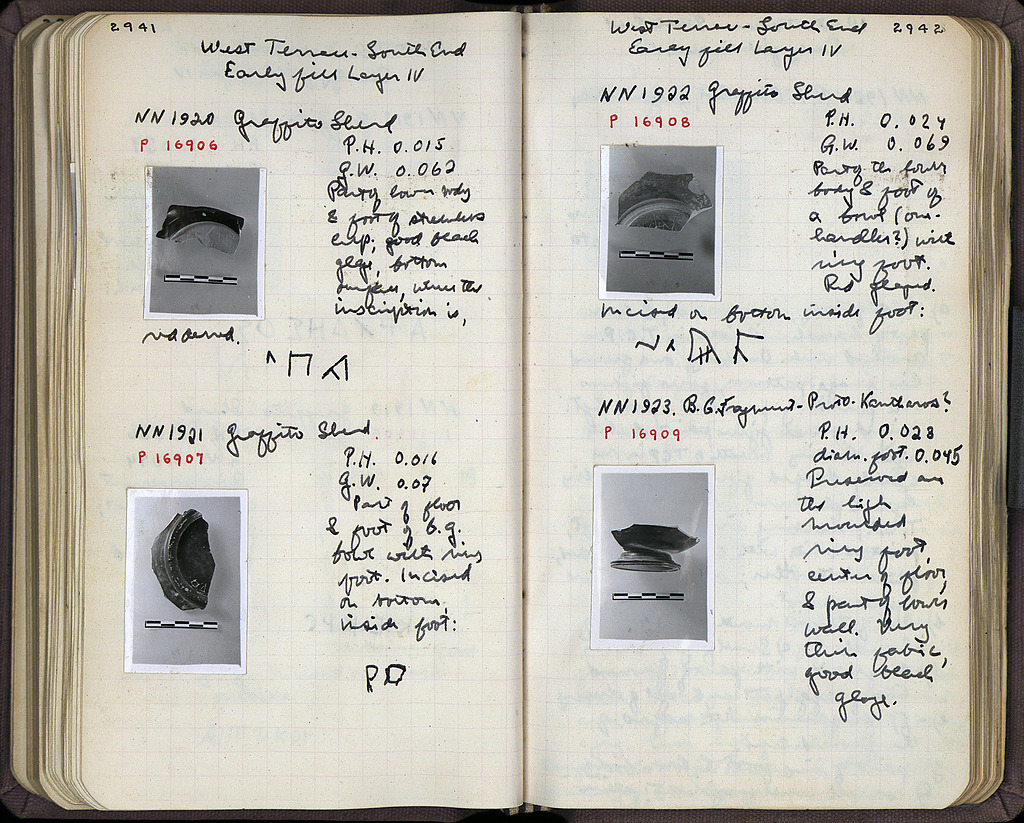 2941
West Terrace - South End
Early fill Layer IV
NN1920 Graffito Sherd
P 16906
P.H. 0.015
G.W. 0.062
Part of lower body
& foot of stemless
cup; good black
glaze, bottom
surface, where the
inscription is,
reserved.
NN1921 Graffito Sherd
P 16907
P.H. 0.016
G.W. 0.07
Part of floor
& foot of b.g.
bowl with ring
foot. Incised
on bottom,
inside foot:
2942
West Terrace - South End
Early fill Layer IV
NN1922 Graffito Sherd
P 16908
P.H. 0.024
G.W. 0.069
Part of the lower
body & foot of
a bowl (one-
handler?) with
ring foot.
Red glazed.
Incised on bottom inside foot:
NN1923. B.G. Fragment - Proto-Kantharos?
P 16909
P.H. 0.028
diam. foot. 0.045
Preserved are
the high
moulded
ring foot,
center of floor,
& part of lower
wall. Very
thin fabric,
good black
glaze.